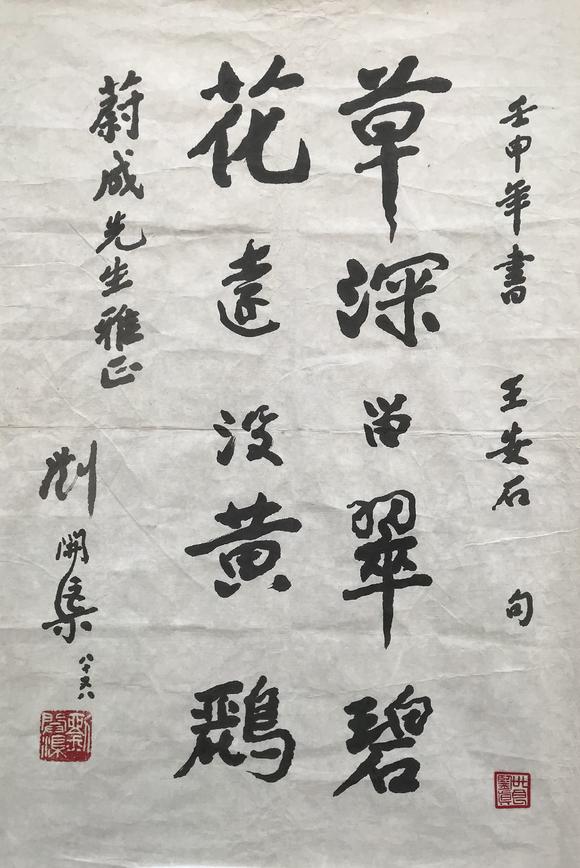 壬申年書 王安石 句
草深留翠碧
花遠没黄鸝
蔚成先生雅正
劉開渠 八十又八